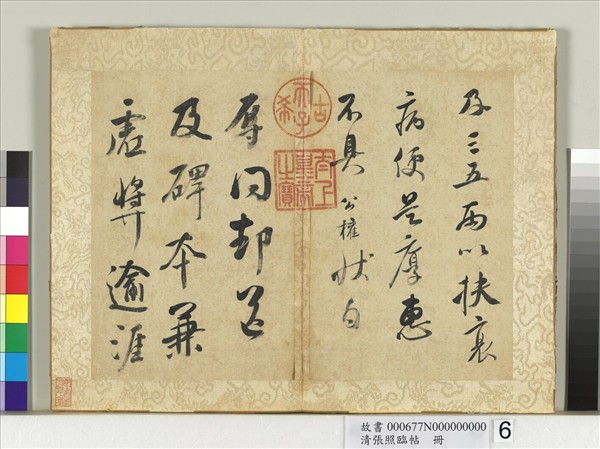 及三五兩以扶衰
病便是厚惠
不具公權狀白
辱問却送
及碑本兼
虛獎逾涯
古希天子
太上皇帝之寶
故書 000677N000000000
清張照臨帖 冊
6